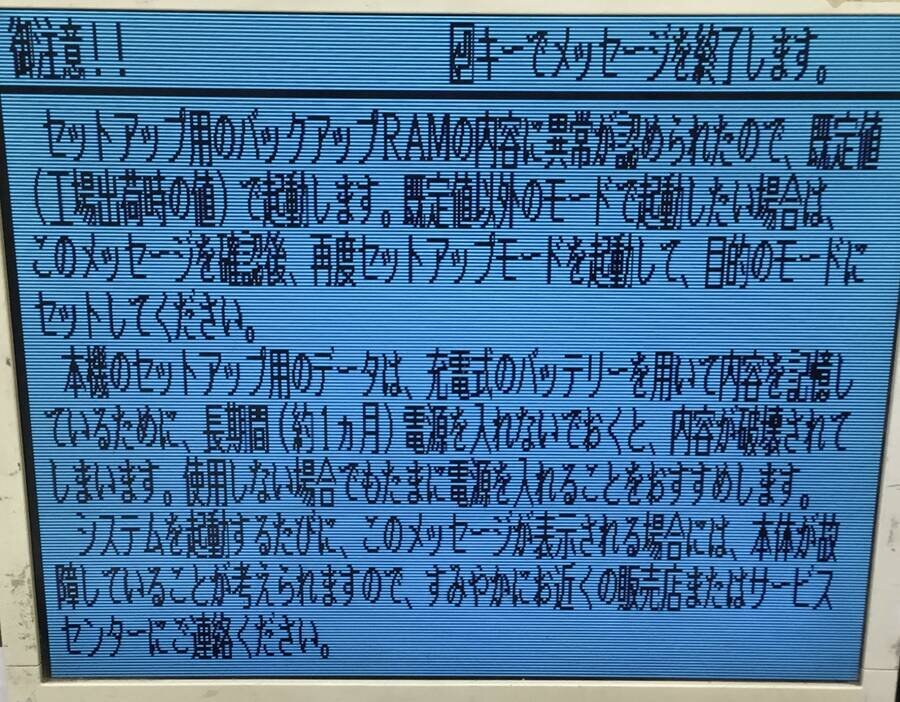 御注意!!
⏎キーでメッセージを終了します。
セットアップ用のバックアップRAMの内容に異常が認められたので、既定値
(工場出荷時の値)で起動します。既定値以外のモードで起動したい場合は、
このメッセージを確認後、再度セットアップモードを起動して、目的のモードに
セットしてください。
本機のセットアップ用のデータは、充電式のバッテリーを用いて内容を記憶し
ているために、長期間(約1ヵ月)電源を入れないでおくと、内容が破壊されて
しまいます。使用しない場合でもたまに電源を入れることをおすすめします。
システムを起動するたびに、このメッセージが表示される場合には、本体が故
障していることが考えられますので、すみやかにお近くの販売店またはサービス
センターにご連絡ください。